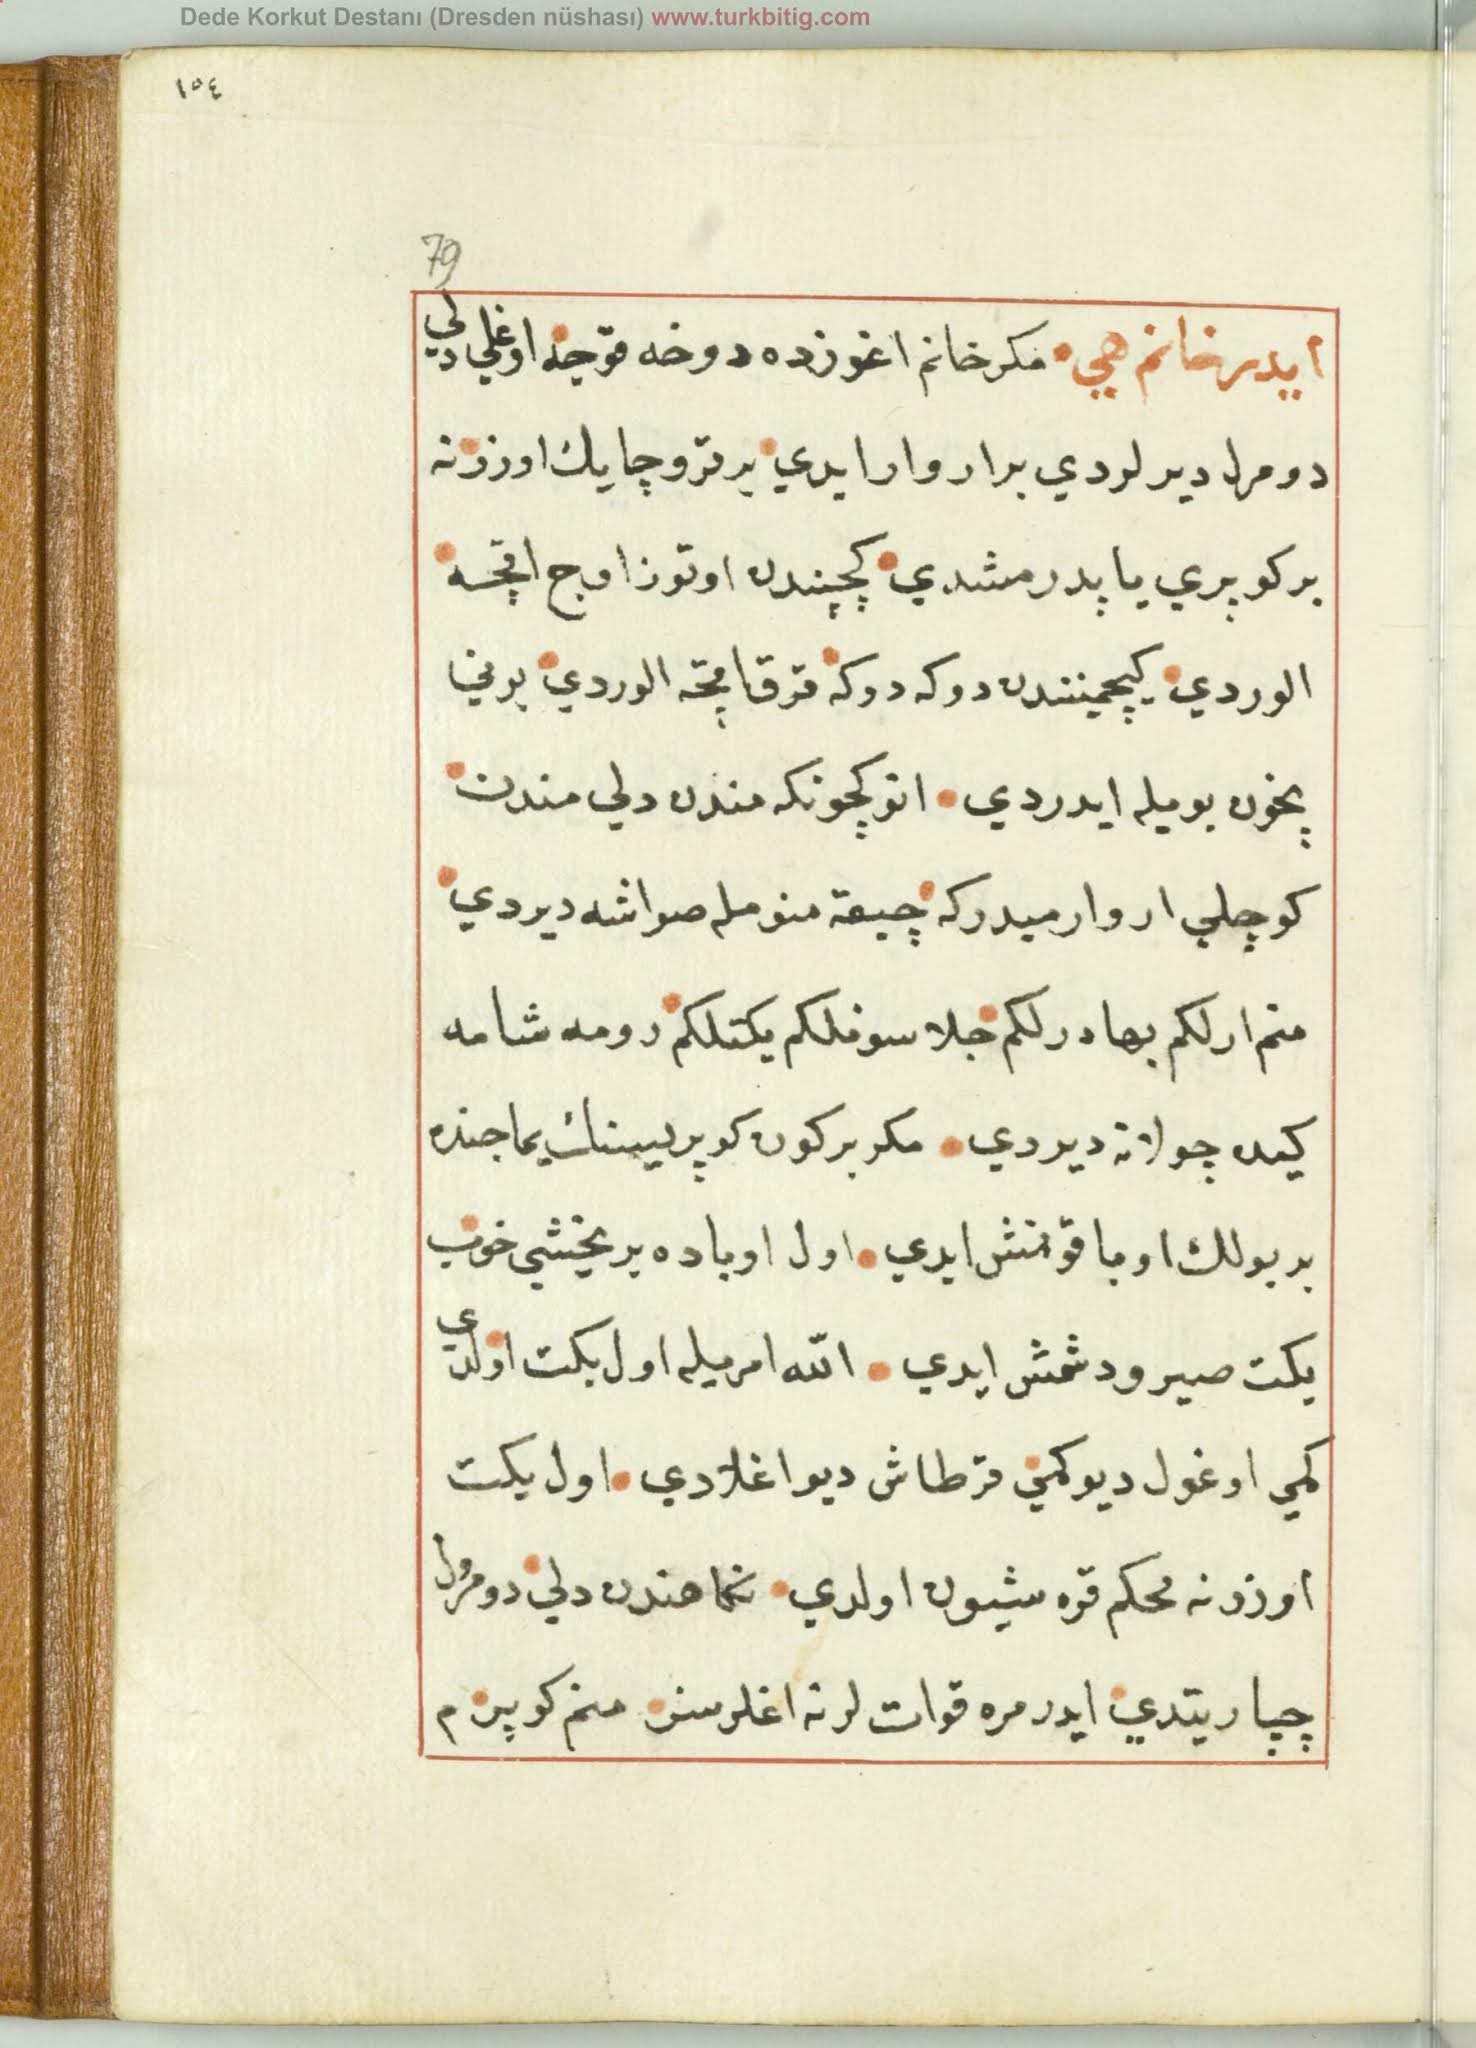 Dede Korkut Destanı (Dresden nüshası) www.turkbitig.com
١٥٤
79
ايدر خانم هي مكر خانم اغوزده دوخه قوجه اوغلي دلي
دومرل ديرلردي بر ار وار ايدي بر قرو چايك اوزرنه
بر كوپري ياپدرمشدي كچپندن اوتوز اوج اقچه
الوردي كيچمينندن دوكه دوكه قرق اقچه الوردي بوني
نچون بويله ايدردي انوكچونكه مندن دلي مندن
كوچلي ار وارميدركه چيقه منومله صواشه ديردي
منم ارلكم بهادرلكم جلاسونلكم يكتلكم رومه شامه
كيده چولانه ديردي مكر بر كون كوپريسنك يماجنده
بر بولك اوبا قونمش ايدي اول اوباده بر يخشي خوب
يكت صيرو دشمش ايدي الله امريله اول يكت اولدي
كمي اوغول ديو كمي قرطاش ديو اغلادي اول يكت
اوزرنه محكم قره شيون اولدي نكاهندن دلي دومرل
چپار يتدي ايدر مره قوات لر نه اغلرسز منم كوپرم